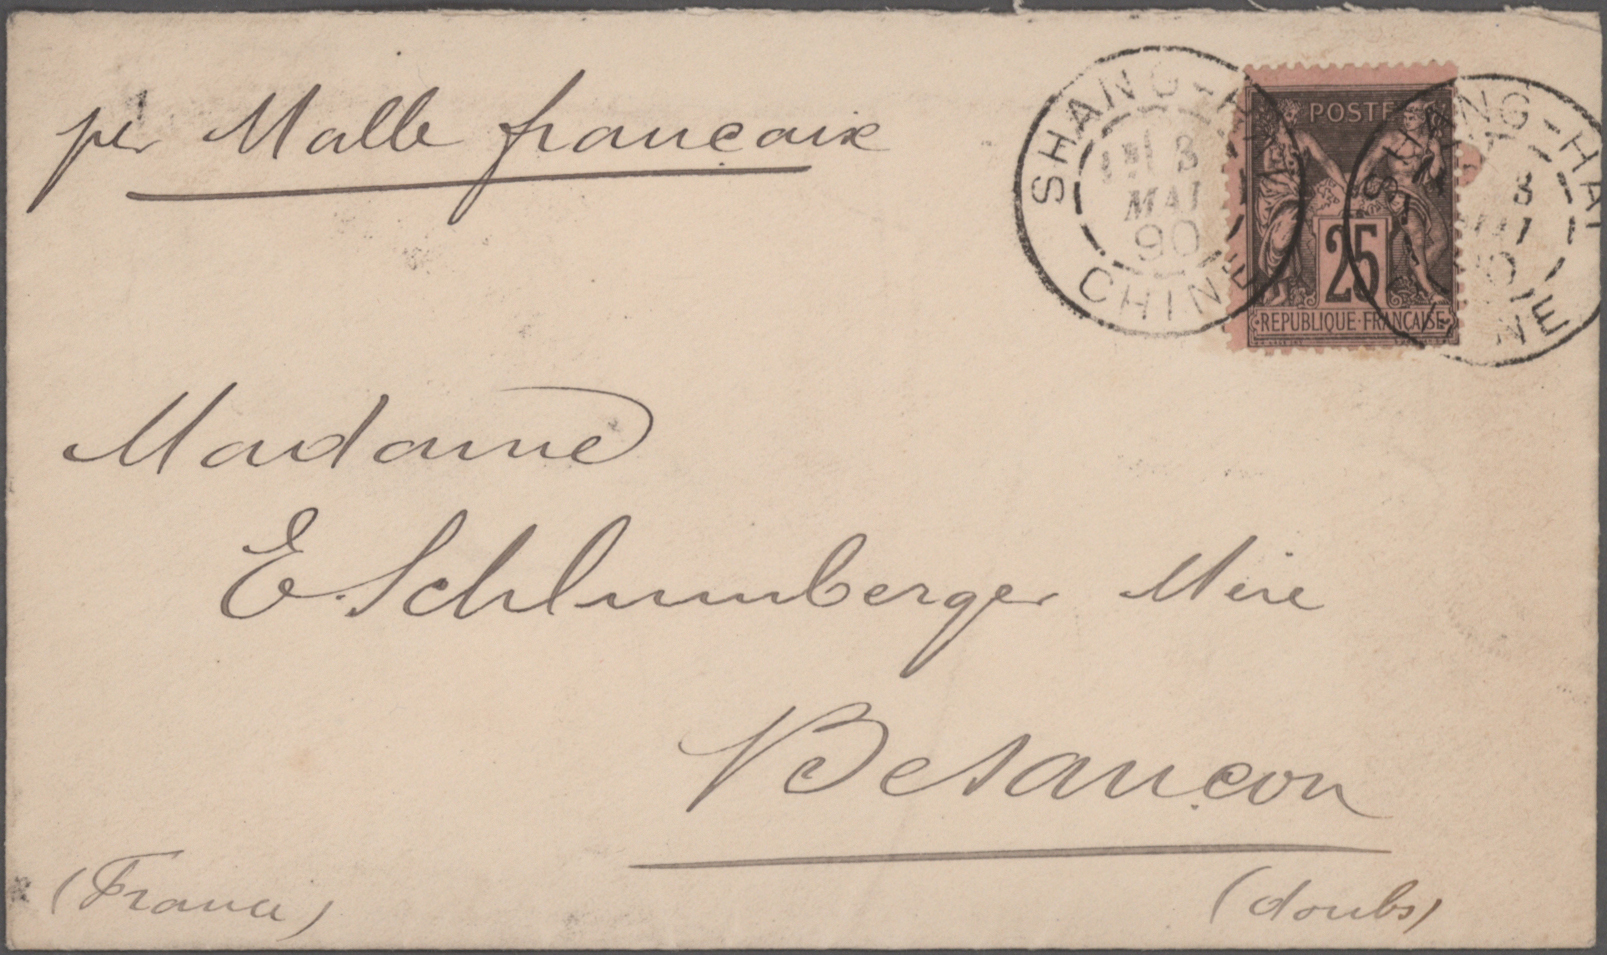 per Malle française
SHANG-HAI
8
MAI
90
CHINE
POSTE
25
REPUBLIQUE·FRANÇAISE
SHANG-HAI
8
MAI
90
CHINE
Madame
E. Schlumberger Mère
Besançon
(France)
(doubs)